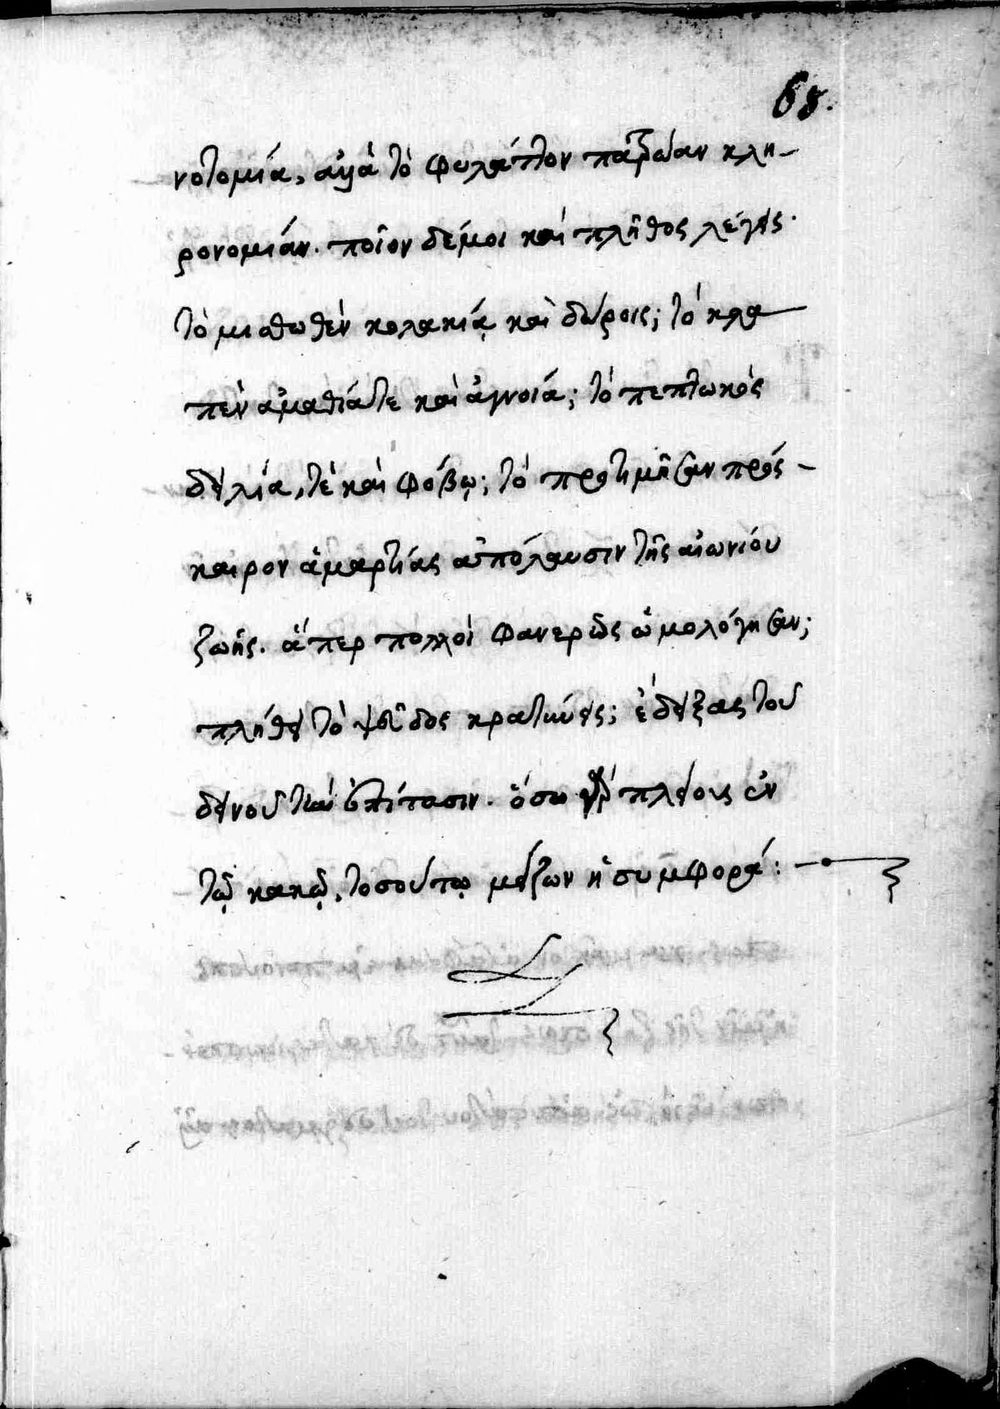 68.
νοτομία, ἀλλὰ τὸ φυλάττον πατρώαν κλη-
ρονομίαν. ποῖον δέμοι καὶ πλῆθος λέγεις·
τὸ μισθωθὲν κολακία καὶ δώροις; τὸ κλα
πὲν ἀμαθίατε καὶ ἀγνοιά; τὸ πεπτωκὸς
δειλία, τὲ καὶ φόβῳ; τὸ προτιμῆσαν πρός-
καιρον ἁμαρτίας ἀπόλαυσιν τῆς αἰωνίου
ζωῆς. ἅπερ πολλοὶ φανερῶς ὡμολόγησαν;
πλήθει τὸ ψεῦδος κρατύνεις; ἔδειξας τοῦ
δεινοῦ τὴν ἐπίτασιν. ὅσω γὰρ πλείους ἐν
τῷ κακῷ, τοσούτῳ μείζων ἡ συμφορά: